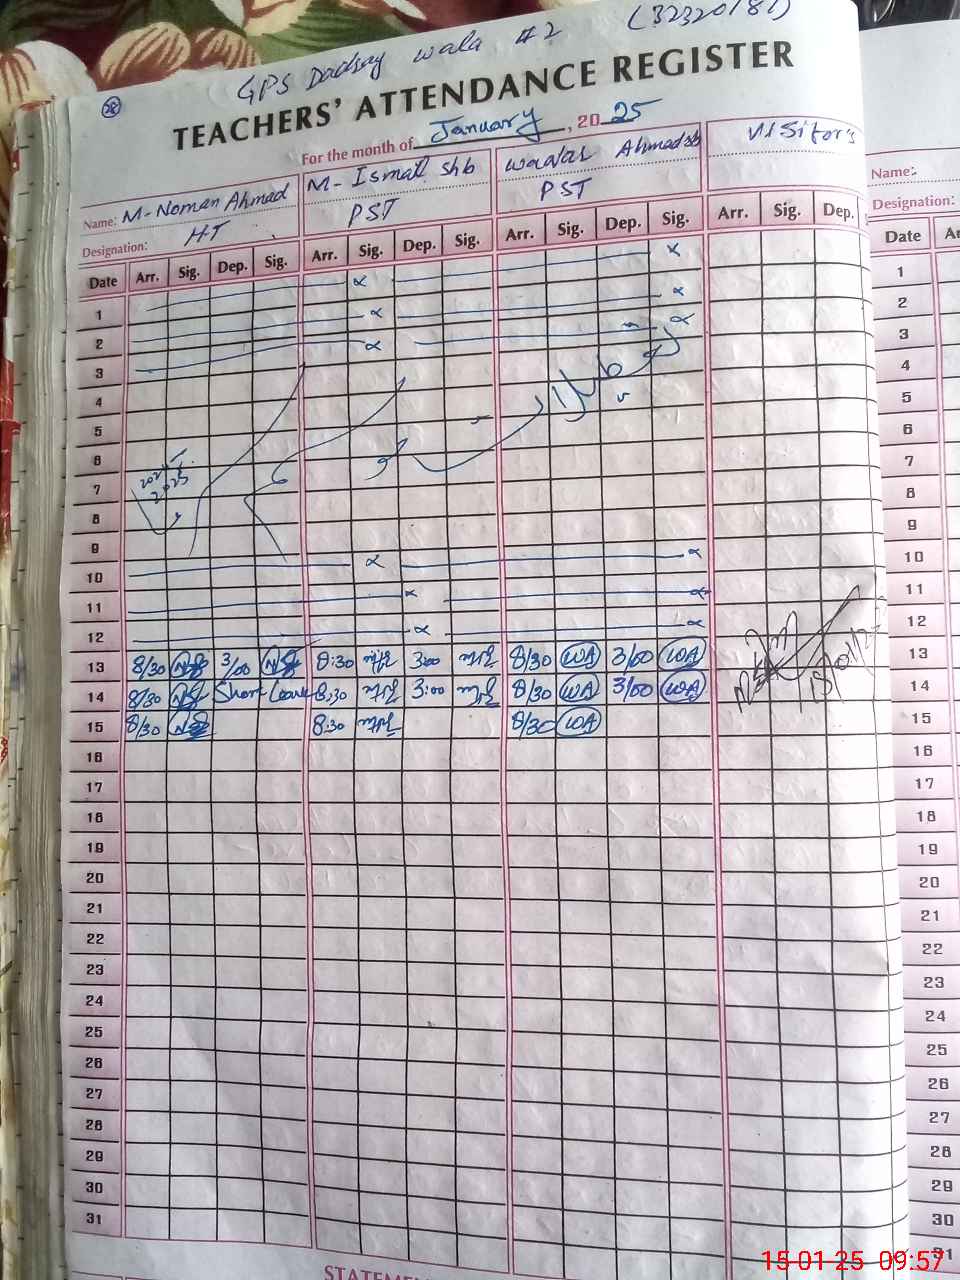 28
GPS Dadsay wala #2 (32320181)
TEACHERS' ATTENDANCE REGISTER
For the month of January, 2025
Name: M-Noman Ahmad M-Ismail Shb Waqar Ahmad sb Visitor's
Designation: HT PST PST
Date Arr. Sig. Dep. Sig. Arr. Sig. Dep. Sig. Arr. Sig. Dep. Sig. Arr. Sig. Dep.
1
2
3
4
5
6
7
8
9
10
11
12
13 8/30 NS 3/00 NS 8:30 3:00 8/30 WA 3/00 WA
14 8/30 NS Short Leave 8:30 3:00 8/30 WA 3/00 WA
15 8/30 NS 8:30 8/30 WA
16
17
18
19
20
21
22
23
24
25
26
27
28
29
30
31
2024
2025
Name:
Designation:
Date
1
2
3
4
5
6
7
8
9
10
11
12
13
14
15
16
17
18
19
20
21
22
23
24
25
26
27
28
29
30
31
15-01-25 09:57